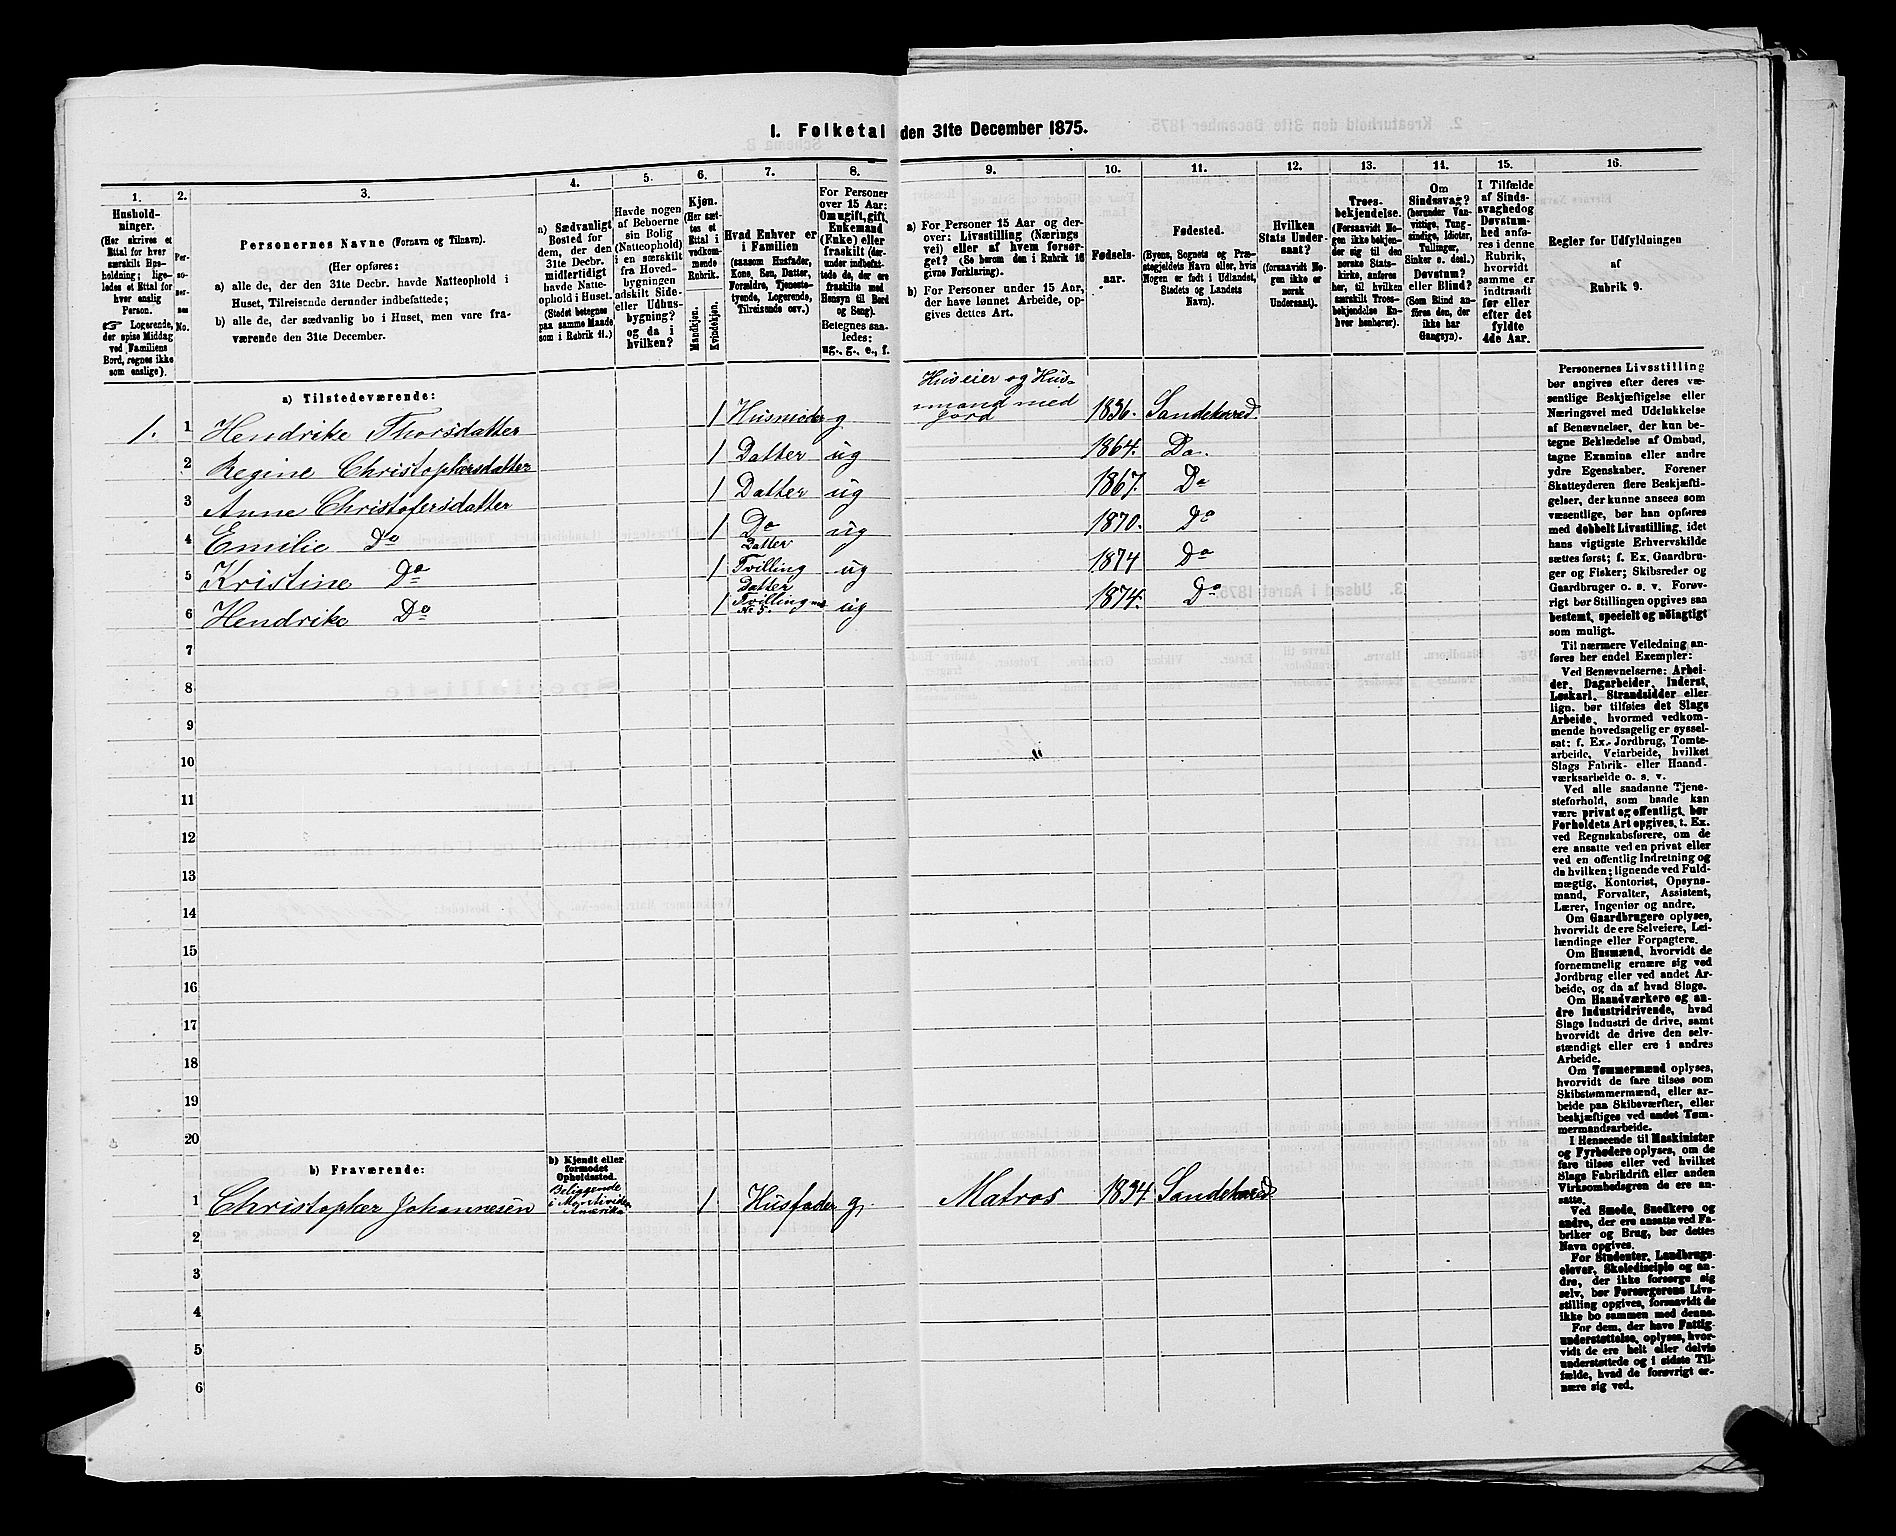 I. Folketal den 31te December 1875.
1. 2. 3. 4. 5. 6. 7. 8. 9. 10. 11. 12. 13. 14. 15. 16.
Husholdninger.
(Her skrives et
Ettal for hver
særskilt Husholdning;
ligeledes et Ettal for
hver enslig
Person.
☞ Logerende,
der spise Middag
ved Familiens
Bord, regnes ikke
som enslige).
Personernes No.
Personernes Navne (Fornavn og Tilnavn).
(Her opføres:
a) alle de, der den 31te Decbr. havde Natteophold i
Huset, Tilreisende derunder indbefattede;
b) alle de, der sædvanlig bo i Huset, men vare fraværende den 31te December.
a) Sædvanligt
Bosted for
dem, der den
31te Decbr.
midlertidigt
havde Natteophold i Huset.
(Stedet betegnes
paa samme Maade
som i Rubrik 11.)
Havde nogen
af Beboerne
sin Bolig
(Natteophold)
i en særskilt
fra Hovedbygningen
adskilt Side-
eller Udhusbygning?
og da i
hvilken?
Kjøn.
(Her sættes et
Ettal i
vedkommende
Rubrik.
Mandkjøn.
Kvindekjøn.
Hvad Enhver er
i Familien
(saasom Husfader,
Kone, Søn, Datter,
Forældre, Tjenestetyende, Logerende,
Tilreisende osv.)
For Personer
over 15 Aar:
Om ugift, gift,
Enkemand
(Enke) eller
fraskilt (derunder indbefattede de, der ere
fraskilte med
Hensyn til Bord
og Seng).
Betegnes saaledes:
ug., g., e., f.
a) For Personer 15 Aar og derover: Livsstilling (Næringsvei) eller af hvem forsørget? (Se herom den i Rubrik 16
givne Forklaring).
b) For Personer under 15 Aar,
der have lønnet Arbeide, opgives dettes Art.
Fødselsaar.
Fødested.
(Byens, Sognets og Præstegjeldets Navn eller, hvis
Nogen er født i Udlandet,
Stedets og Landets
Navn).
Hvilken
Stats Undersaat?
(forsaavidt Nogen ikke er
norsk
Undersaat).
Troesbekjendelse.
(Forsaavidt Nogen ikke bekjender sig til den
norske Statskirke, anføres
her, til hvilken
særskilt Troesbekjendelse Enhver henhører).
Om
Sindssvag?
(herunder Vanvittige, Tungsindige, Idioter,
Tullinger,
Sinker o. desl.)
Døvstum?
eller Blind?
(Som Blind anføres den, der
ikke har
Gangsyn).
I Tilfælde
af Sindssvaghed og
Døvstumhed anføres i denne
Rubrik,
hvorvidt
samme er
indtraadt
før eller
efter det
fyldte
4de Aar.
Regler for Udfyldningen
af
Rubrik 9.
a) Tilstedeværende:
1. 1 Hendrike Thorsdatter 1 Husmoder g Huseier og Husmand med Jord 1836. Sandehered
2 Regine Christophersdatter 1 Datter ug 1864. Do.
3 Anne Christofersdatter 1 Datter ug 1867. Do
4 Emilie Do 1 Do ug 1870. Do
5 Kristine Do 1 Datter Tvilling ug 1874 Do
6 Hendrike Do 1 Datter Tvilling m. No 5. ug 1874. Do
7
8
9
10
11
12
13
14
15
16
17
18
19
20
b) Fraværende:
b) Kjendt eller
formodet
Opholdssted.
1 Christopher Johannesen Beliggende i Amerika 1 Husfader g. Matros 1834 Sandehered
2
3
4
5
6
Personernes Livsstilling
bør angives efter deres væsentlige Beskjæftigelse eller
Næringsvei med Udelukkelse
af Benævnelser, der kun betegne Beklædelse af Ombud,
tagne Examina eller andre
ydre Egenskaber. Forener
Skatteyderen flere Beskjæftigelser, der kunne ansees som
væsentlige, bør han opføres
med dobbelt Livsstilling, idet
hans vigtigste Erhvervskilde
sættes først; f. Ex. Gaardbruger og Fisker; Skibsreder og
Gaardbruger o. s. v. Forøvrigt bør Stillingen opgives saa
bestemt, specielt og nøiagtigt
som muligt.
Til nærmere Veiledning anføres her endel Exempler:
Ved Benævnelserne: Arbeider, Dagarbeider, Inderst,
Løskarl, Strandsidder eller
lign. bør tilføies det Slags
Arbeide, hvormed vedkommende hovedsagelig er sysselsat; f. Ex. Jordbrug, Tomtearbeide, Veiarbeide, hvilket
Slags Fabrik- eller Haandværksarbeide o. s. v.
Ved alle saadanne Tjenesteforhold, som baade kan
være privat og offentligt, bør
Forholdets Art opgives, t. Ex.
ved Regnskabsførere, om de
ere ansatte ved en privat eller
ved en offentlig Indretning og
da hvilken; lignende ved Fuldmægtig, Kontorist, Opsynsmand, Forvalter, Assistent,
Lærer, Ingeniør og andre.
Om Gaardbrugere oplyses,
hvorvidt de ere Selveiere, Leilændinge eller Forpagtere.
Om Husmænd, hvorvidt de
fornemmelig ernære sig ved
Jordbrug eller ved andet Arbeide, og da af hvad Slags.
Om Haandværkere og andre Industridrivende, hvad
Slags Industri de drive, samt
hvorvidt de drive den selvstændigt eller ere i andres
Arbeide.
Om Tømmermænd oplyses,
hvorvidt de fare tilsøs som
Skibstømmermænd, eller arbeide paa Skibsværfter, eller
beskjæftiges ved andet Tømmermandarbeide.
I Henseende til Maskinister
og Fyrbødere oplyses, om de
fare tilsøs eller ved hvilket
Slags Fabrikdrift eller anden
Virksomhedsgren de ere ansatte.
Ved Smede, Snedkere og
andre, der ere ansatte ved Fabriker og Brug, bør dettes
Navn opgives.
For Studenter, Landbrugselever, Skoledisciple og andre, der ikke forsørge sig
selv, bør Forsørgerens Livsstilling opgives, forsaavidt de
ikke bo sammen med denne.
For dem, der have Fattigunderstøttelse, oplyses, hvorvidt de ere helt eller delvis
understøttede og i sidste Tilfælde, hvad de forøvrigt ernære sig ved.